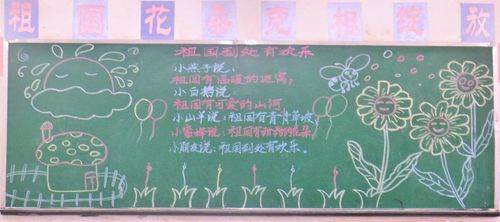 祖国花朵竞相绽放
祖国到处有欢乐
小燕子说,
祖国有温暖的
小白鹅说,
祖国有可爱的山河
小山羊说:祖国有青青草坡
小蜜蜂说:祖国有甜甜的花朵
小朋友说:祖国到处有欢乐。